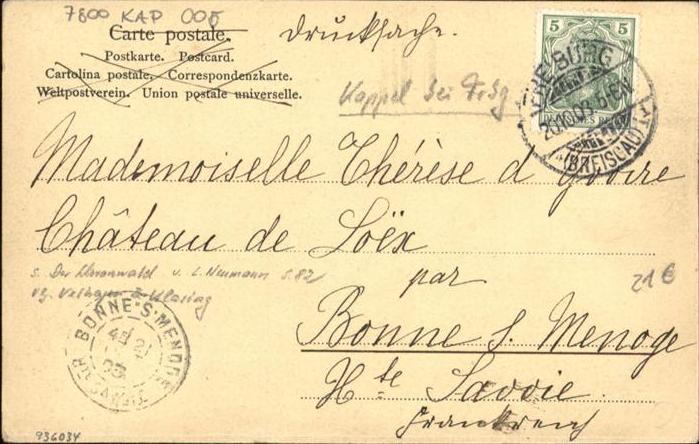 7800 KAP 005
Carte postale.
Drucksache.
Postkarte. Postcard.
Cartolina postale. Correspondenzkarte.
Weltpostverein. Union postale universelle.
Kappel bei Frbg
5 5
FREIBURG
20.10.03. 6-7 N
(BREISGAU)
Mademoiselle Thérèse d'
Château de Loëx
s. Der v. L. Neumann S. 82
Vlg. Velhagen & Klasing
par
21 €
Bonne s. Menoge
BONNE-S-MENOGE
21
03
Hte Savoie.
Frankreich
936034